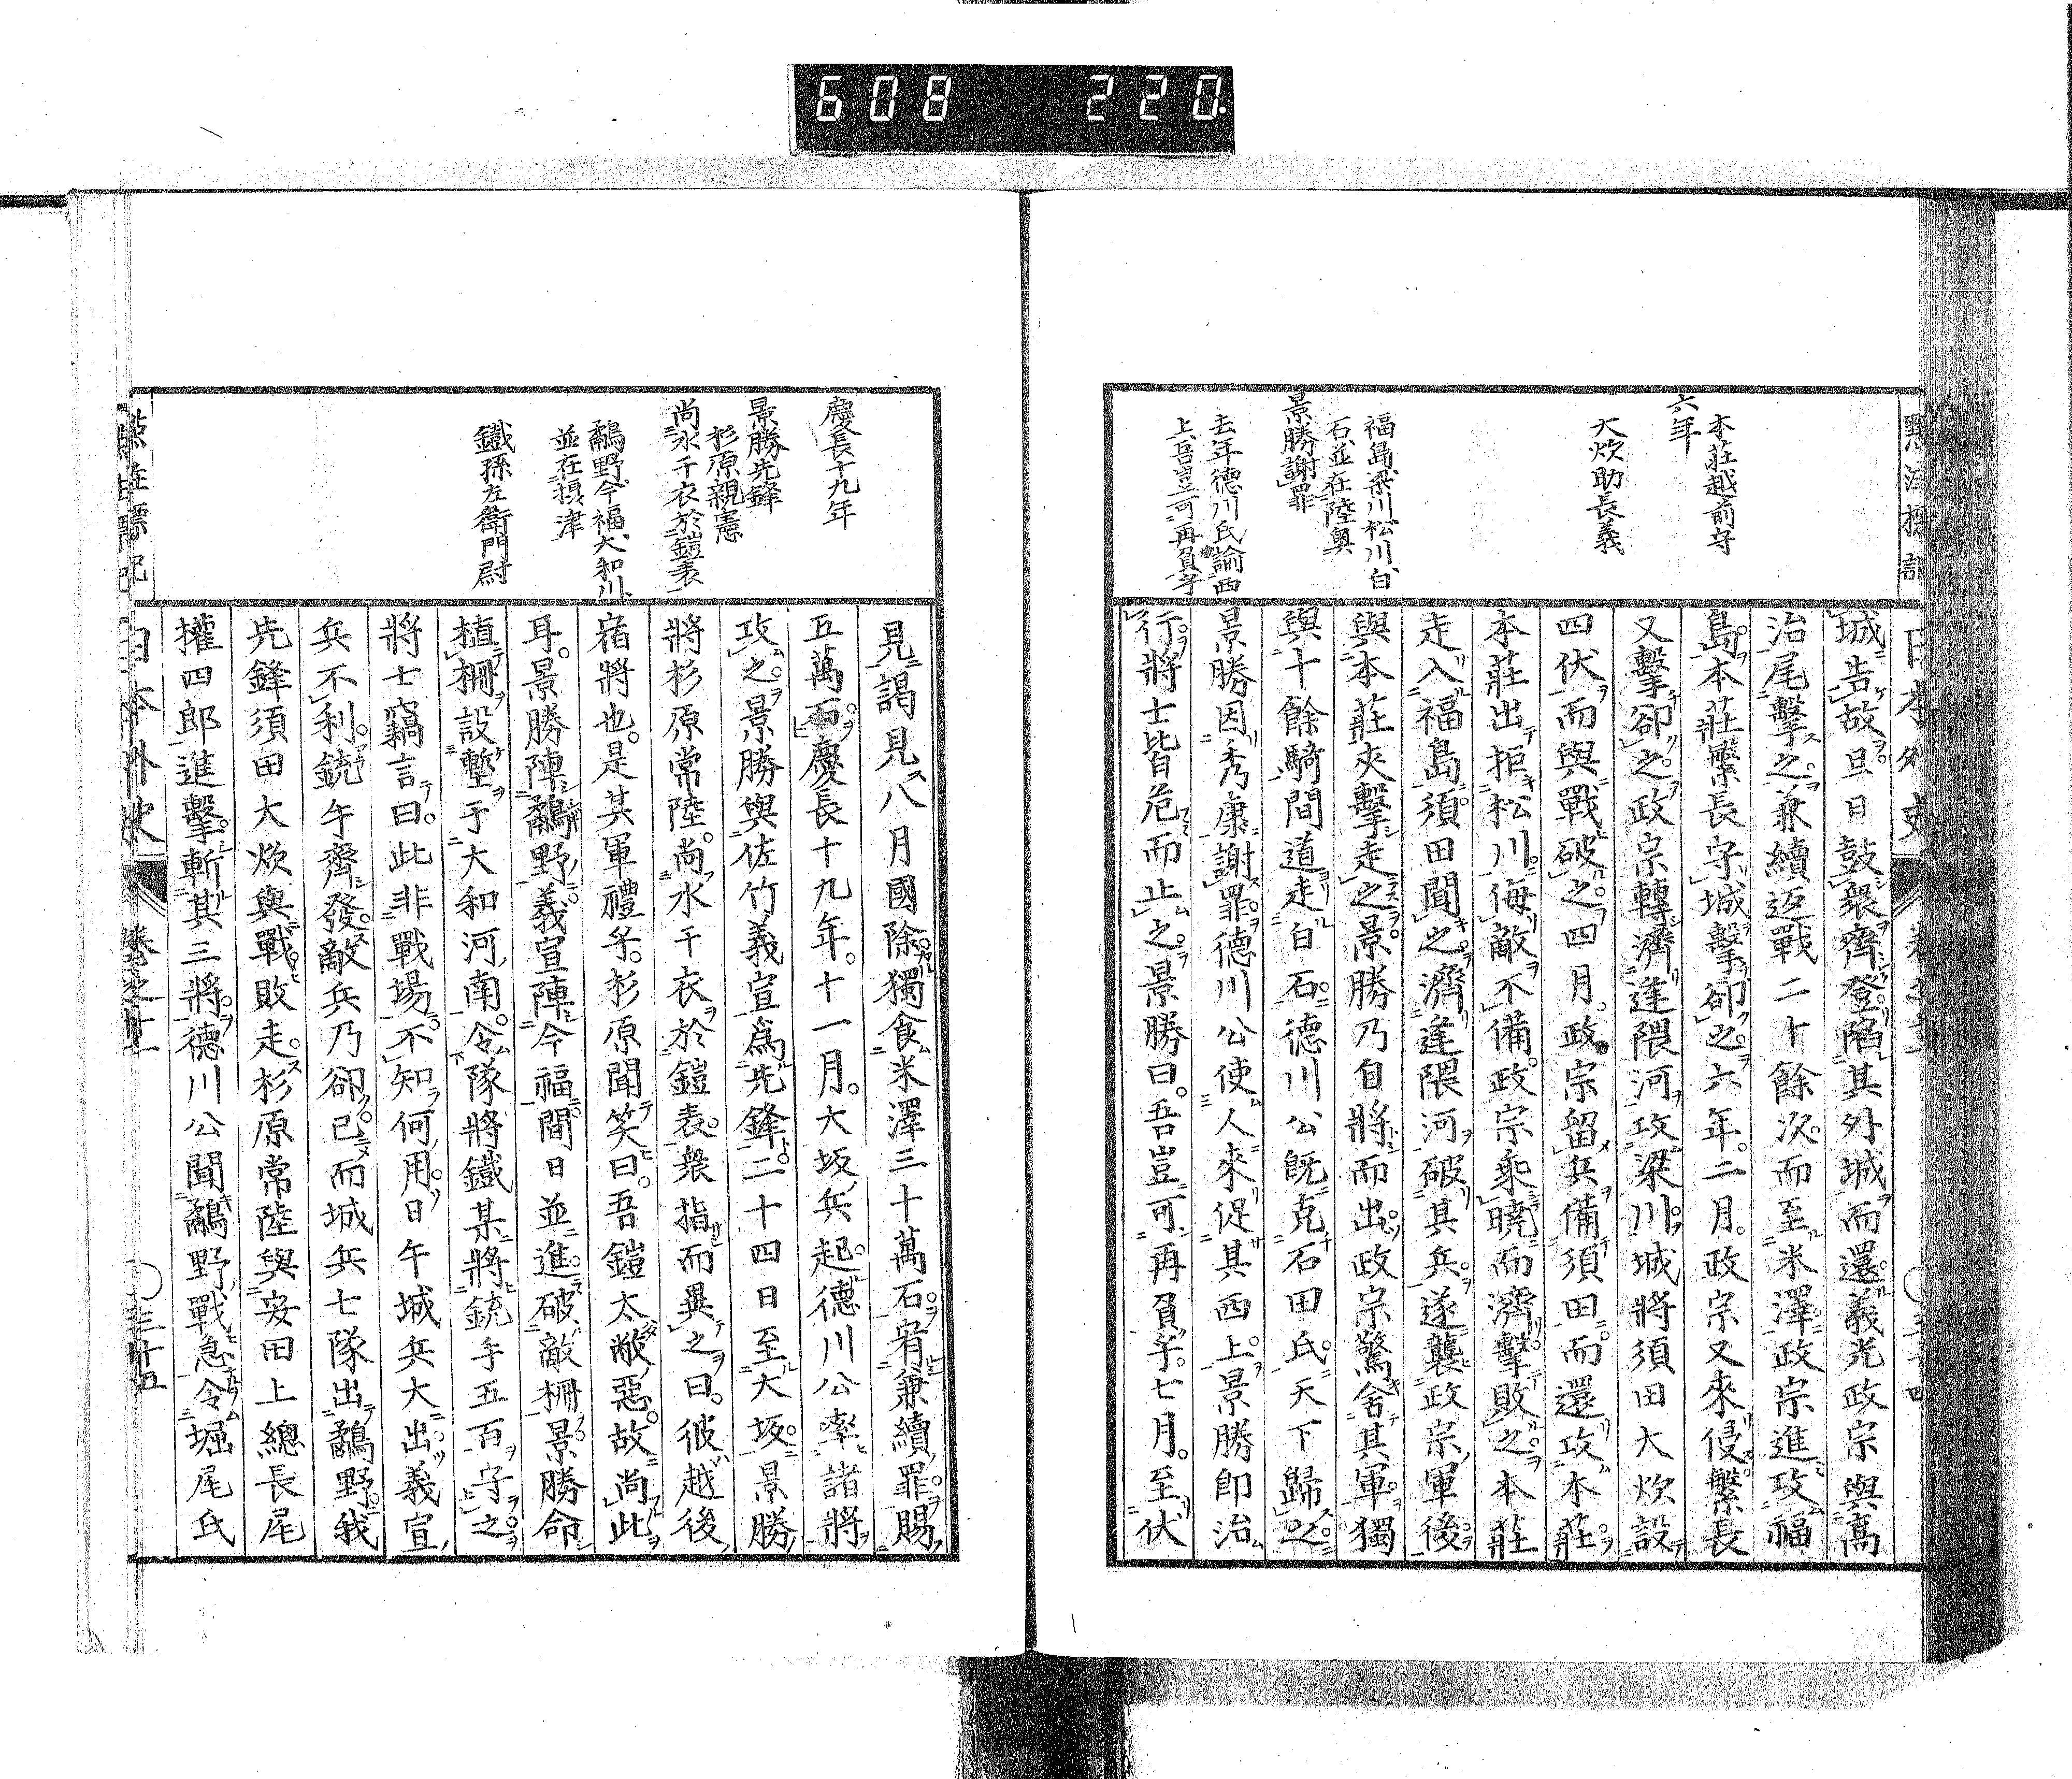 608 220
六年
本莊越前守
大炊助長義
福島、梁川、松川、白
石、並在陸奧
景勝謝罪
去年德川氏諭西
上、吾豈可再負乎
城告故旦日鼓衆齊登陷其外城而還義光政宗與高
治尾擊之兼續返戰二十餘次而至米澤政宗進攻福
島本莊繁長守城擊卻之六年二月政宗又來侵繁長
又擊卻之政宗轉濟逢隈河攻梁川城將須田大炊設
四伏而與戰破之四月政宗留兵備須田而還攻本莊
本莊出拒松川侮敵不備政宗乘曉而濟擊敗之本莊
走入福島須田聞之濟逢隈河破其兵遂襲政宗軍後
與本莊夾擊走之景勝乃自將而出政宗驚舍其軍獨
與十餘騎間道走白石德川公既克石田氏天下歸之
景勝因秀康謝罪德川公使人來促其西上景勝卽治
行將士皆危而止之景勝曰吾豈可再負乎七月至伏
慶長十九年
景勝先鋒
杉原親憲
尚水干衣於鎧表
鷸野、今福、大和川、
並在攝津
鐵孫左衛門尉
見謁見八月國除獨食米澤三十萬石宥兼續罪賜
五萬石慶長十九年十一月大坂兵起德川公率諸將
攻之景勝與佐竹義宣爲先鋒二十四日至大坂景勝
將杉原常陸尚水干衣於鎧表衆指而異之曰彼越後
宿將也是其軍禮乎杉原聞笑曰吾鎧太敝惡故尚此
耳景勝陣鷸野義宣陣今福間日並進破敵柵景勝命
植柵設塹于大和河南令隊將鐵某將銃手五百守之
將士竊言曰此非戰場不知何用日午城兵大出義宣
兵不利銃手齊發敵兵乃卻已而城兵七隊出鷸野我
先鋒須田大炊與戰敗走杉原常陸與安田上總長尾
權四郎進擊斬其三將德川公聞鷸野戰急令堀尾氏
日本外史
卷之十一
三十五